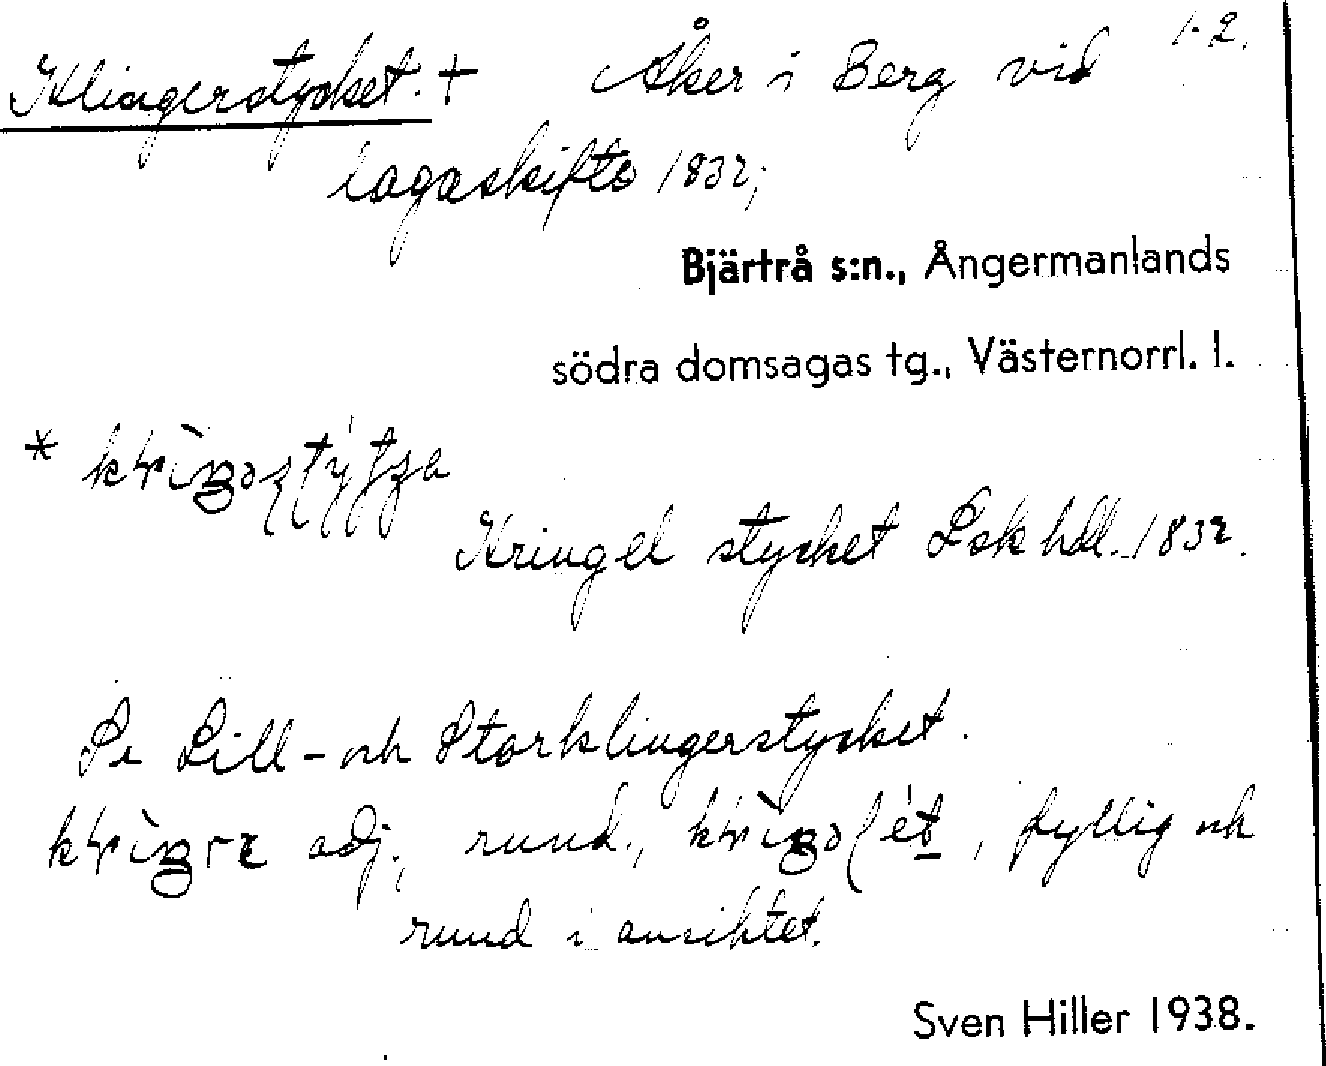 Klingerstycket. + Åker i Berg vid 1-2.
lagaskifte 1832;
Bjärtrå s:n., Ångermanlands
södra domsagas tg., Västernorrl. l.
*
Kringel stycket Lsk hdl. 1832.
Se Lill- och Storklingerstycket.
adj., rund., , fyllig och
rund i ansiktet.
Sven Hiller 1938.